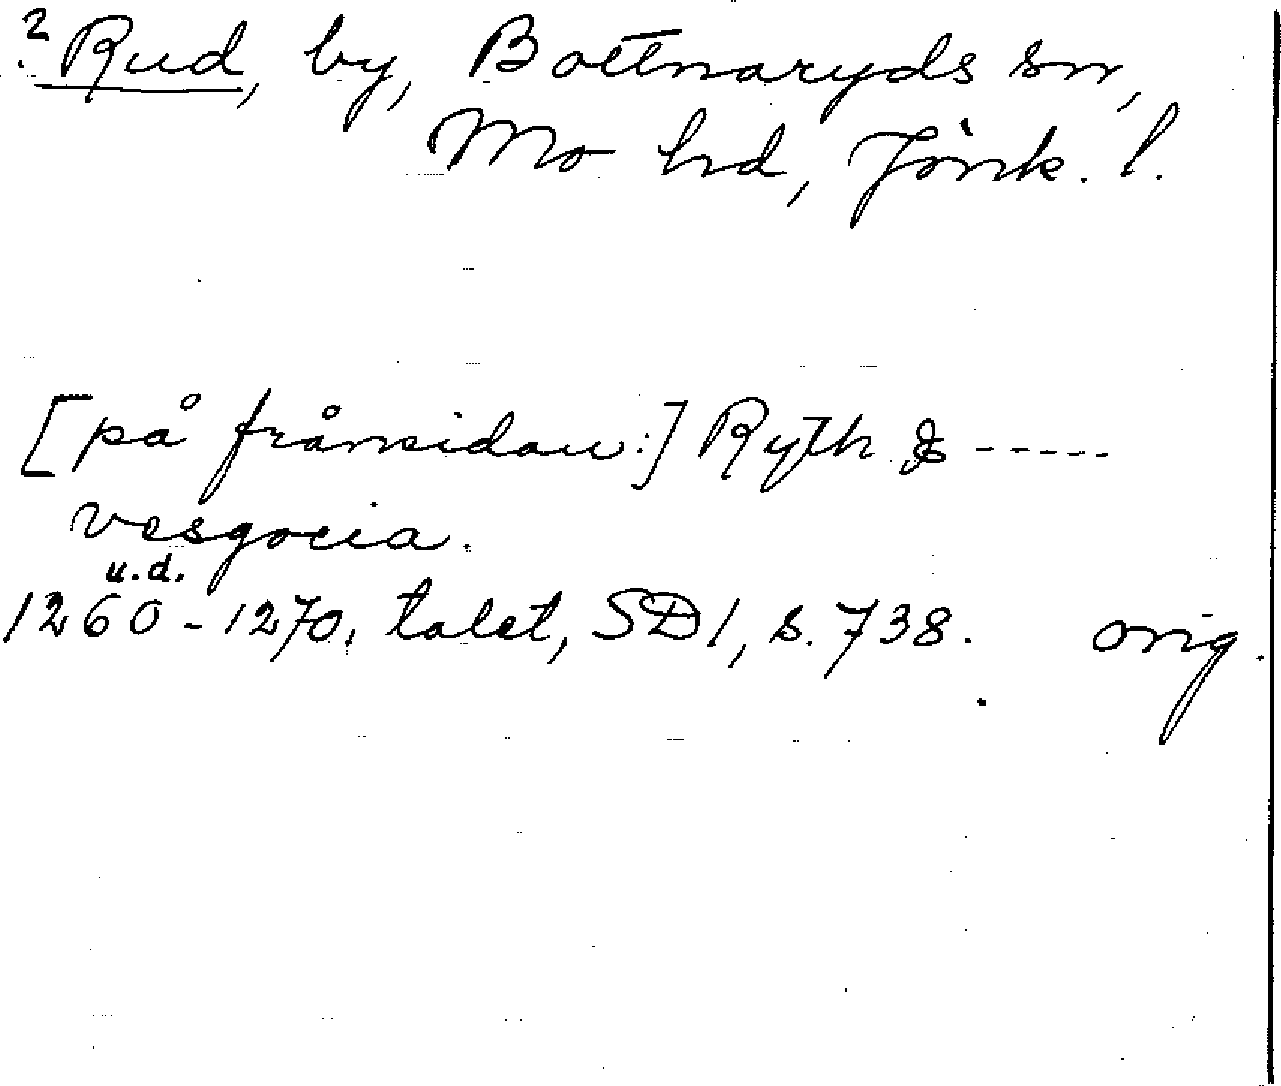 ? Rud, by, Bottnaryds sn,
Mo hd, Jönk. l.
[på frånsidan:] Ryth & -----
vesgocia.
u.d.
1260-1270, talet, SD1, s. 738. orig.